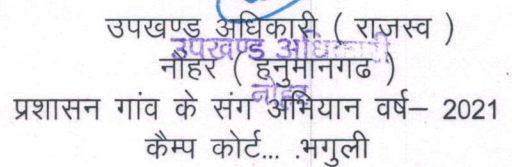 उपखण्ड अधिकारी ( राजस्व )
उपखण्ड अधिकारी
नौहर ( हनुमानगढ )
नोहर
प्रशासन गांव के संग अभियान वर्ष– 2021
कैम्प कोर्ट... .भगुली